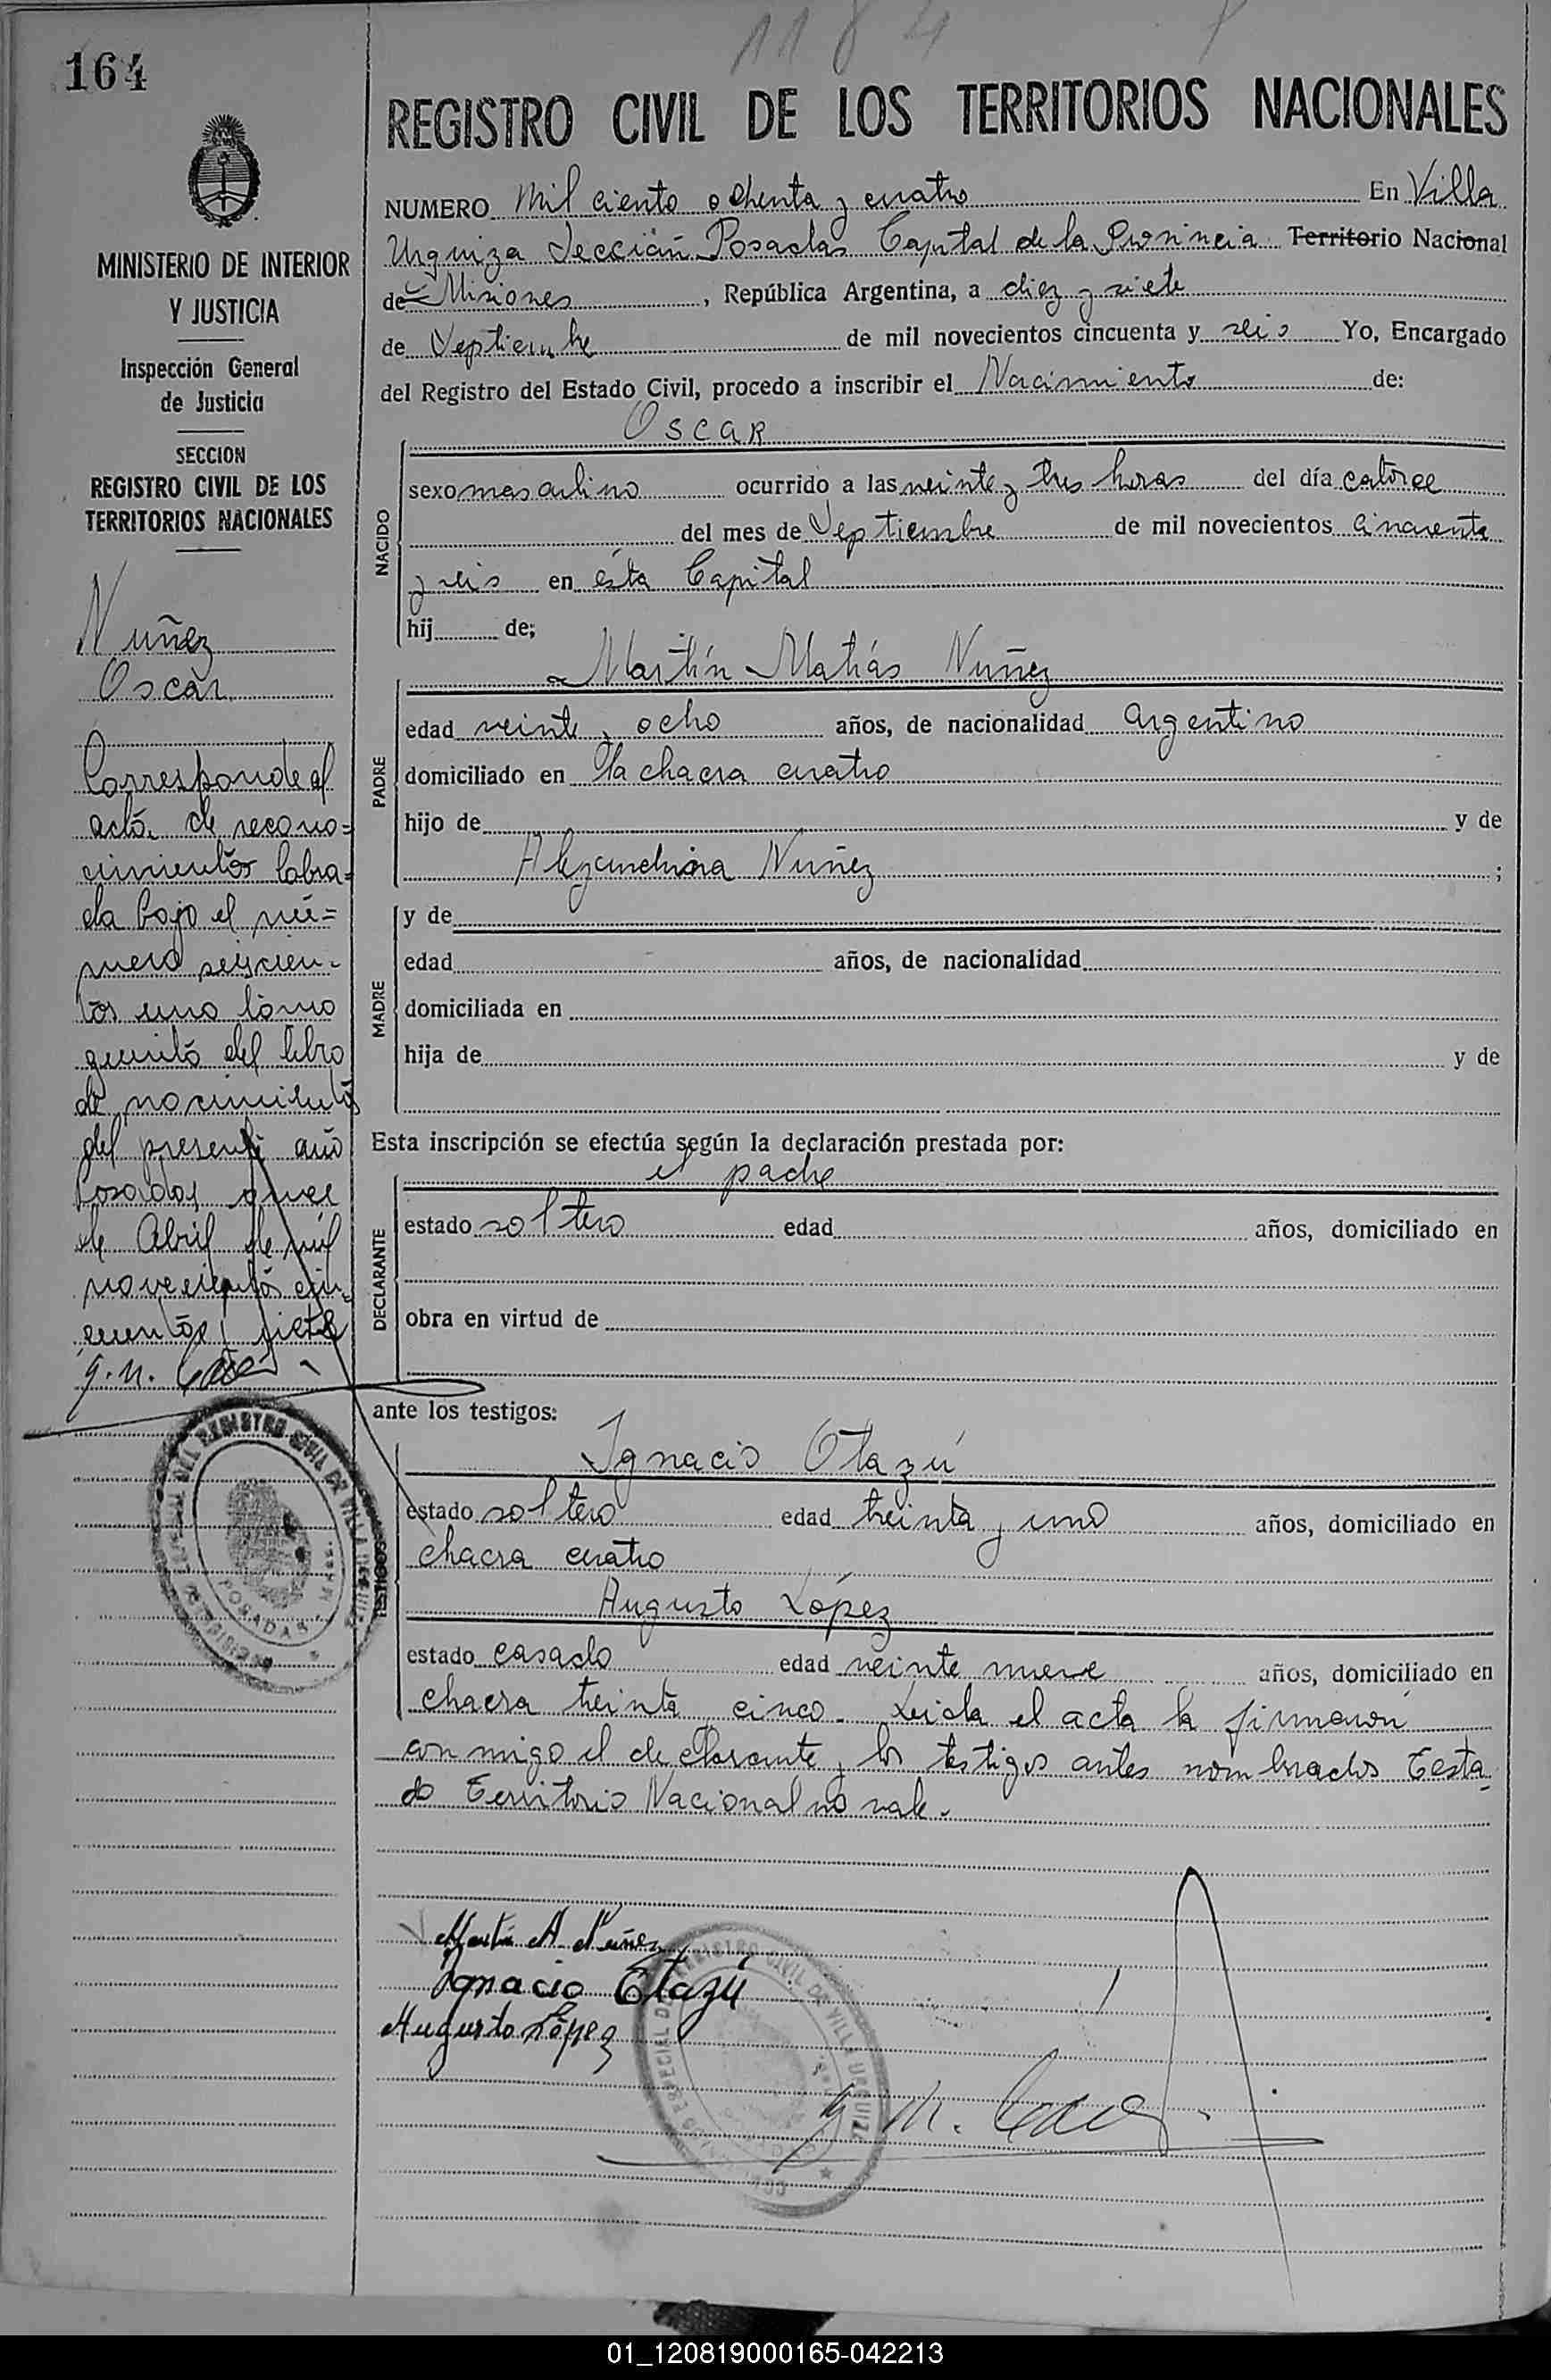 1184
164
REGISTRO CIVIL DE LOS TERRITORIOS NACIONALES
MINISTERIO DE INTERIOR
Y JUSTICIA
Inspección General
de Justicia
SECCION
REGISTRO CIVIL DE LOS
TERRITORIOS NACIONALES
Nuñez
Oscar
Corresponde al
acta de recono=
cimientos labra=
da bajo el nú=
mero seiscien-
tos uno tomo
quinto del libro
de nacimientos
del presente año
Posadas once
de Abril de mil
novecientos cin-
cuenta y siete
NUMERO mil ciento ochenta y cuatro En Villa
Urquiza Sección Posadas Capital de la Provincia Territorio Nacional
de Misiones, República Argentina, a diez y siete
de Septiembre de mil novecientos cincuenta y seis Yo, Encargado
del Registro del Estado Civil, procedo a inscribir el Nacimiento de:
NACIDO
Oscar
sexo masculino ocurrido a las veinte y tres horas del día catorce
del mes de Septiembre de mil novecientos cincuenta
y seis en ésta Capital
hij de;
PADRE
Martín Matías Nuñez
edad veinte y ocho años, de nacionalidad argentino
domiciliado en la chacra cuatro
hijo de y de
Alejandrina Nuñez ;
MADRE
y de
edad años, de nacionalidad
domiciliada en
hija de y de
Esta inscripción se efectúa según la declaración prestada por:
DECLARANTE
el padre
estado soltero edad años, domiciliado en
obra en virtud de
ante los testigos:
TESTIGOS
Ignacio Otazú
estado soltero edad treinta y uno años, domiciliado en
chacra cuatro
Augusto López
estado casado edad veinte nueve años, domiciliado en
chacra treinta y cinco. Leida el acta la firmaron
con migo el declarante y los testigos antes nombrados Testa-
do Territorio Nacional no vale.
Martín M Nuñez
Ignacio Otazú
Augusto López
REGISTRO CIVIL DE VILLA URQUIZA
POSADAS
01_120819000165-042213